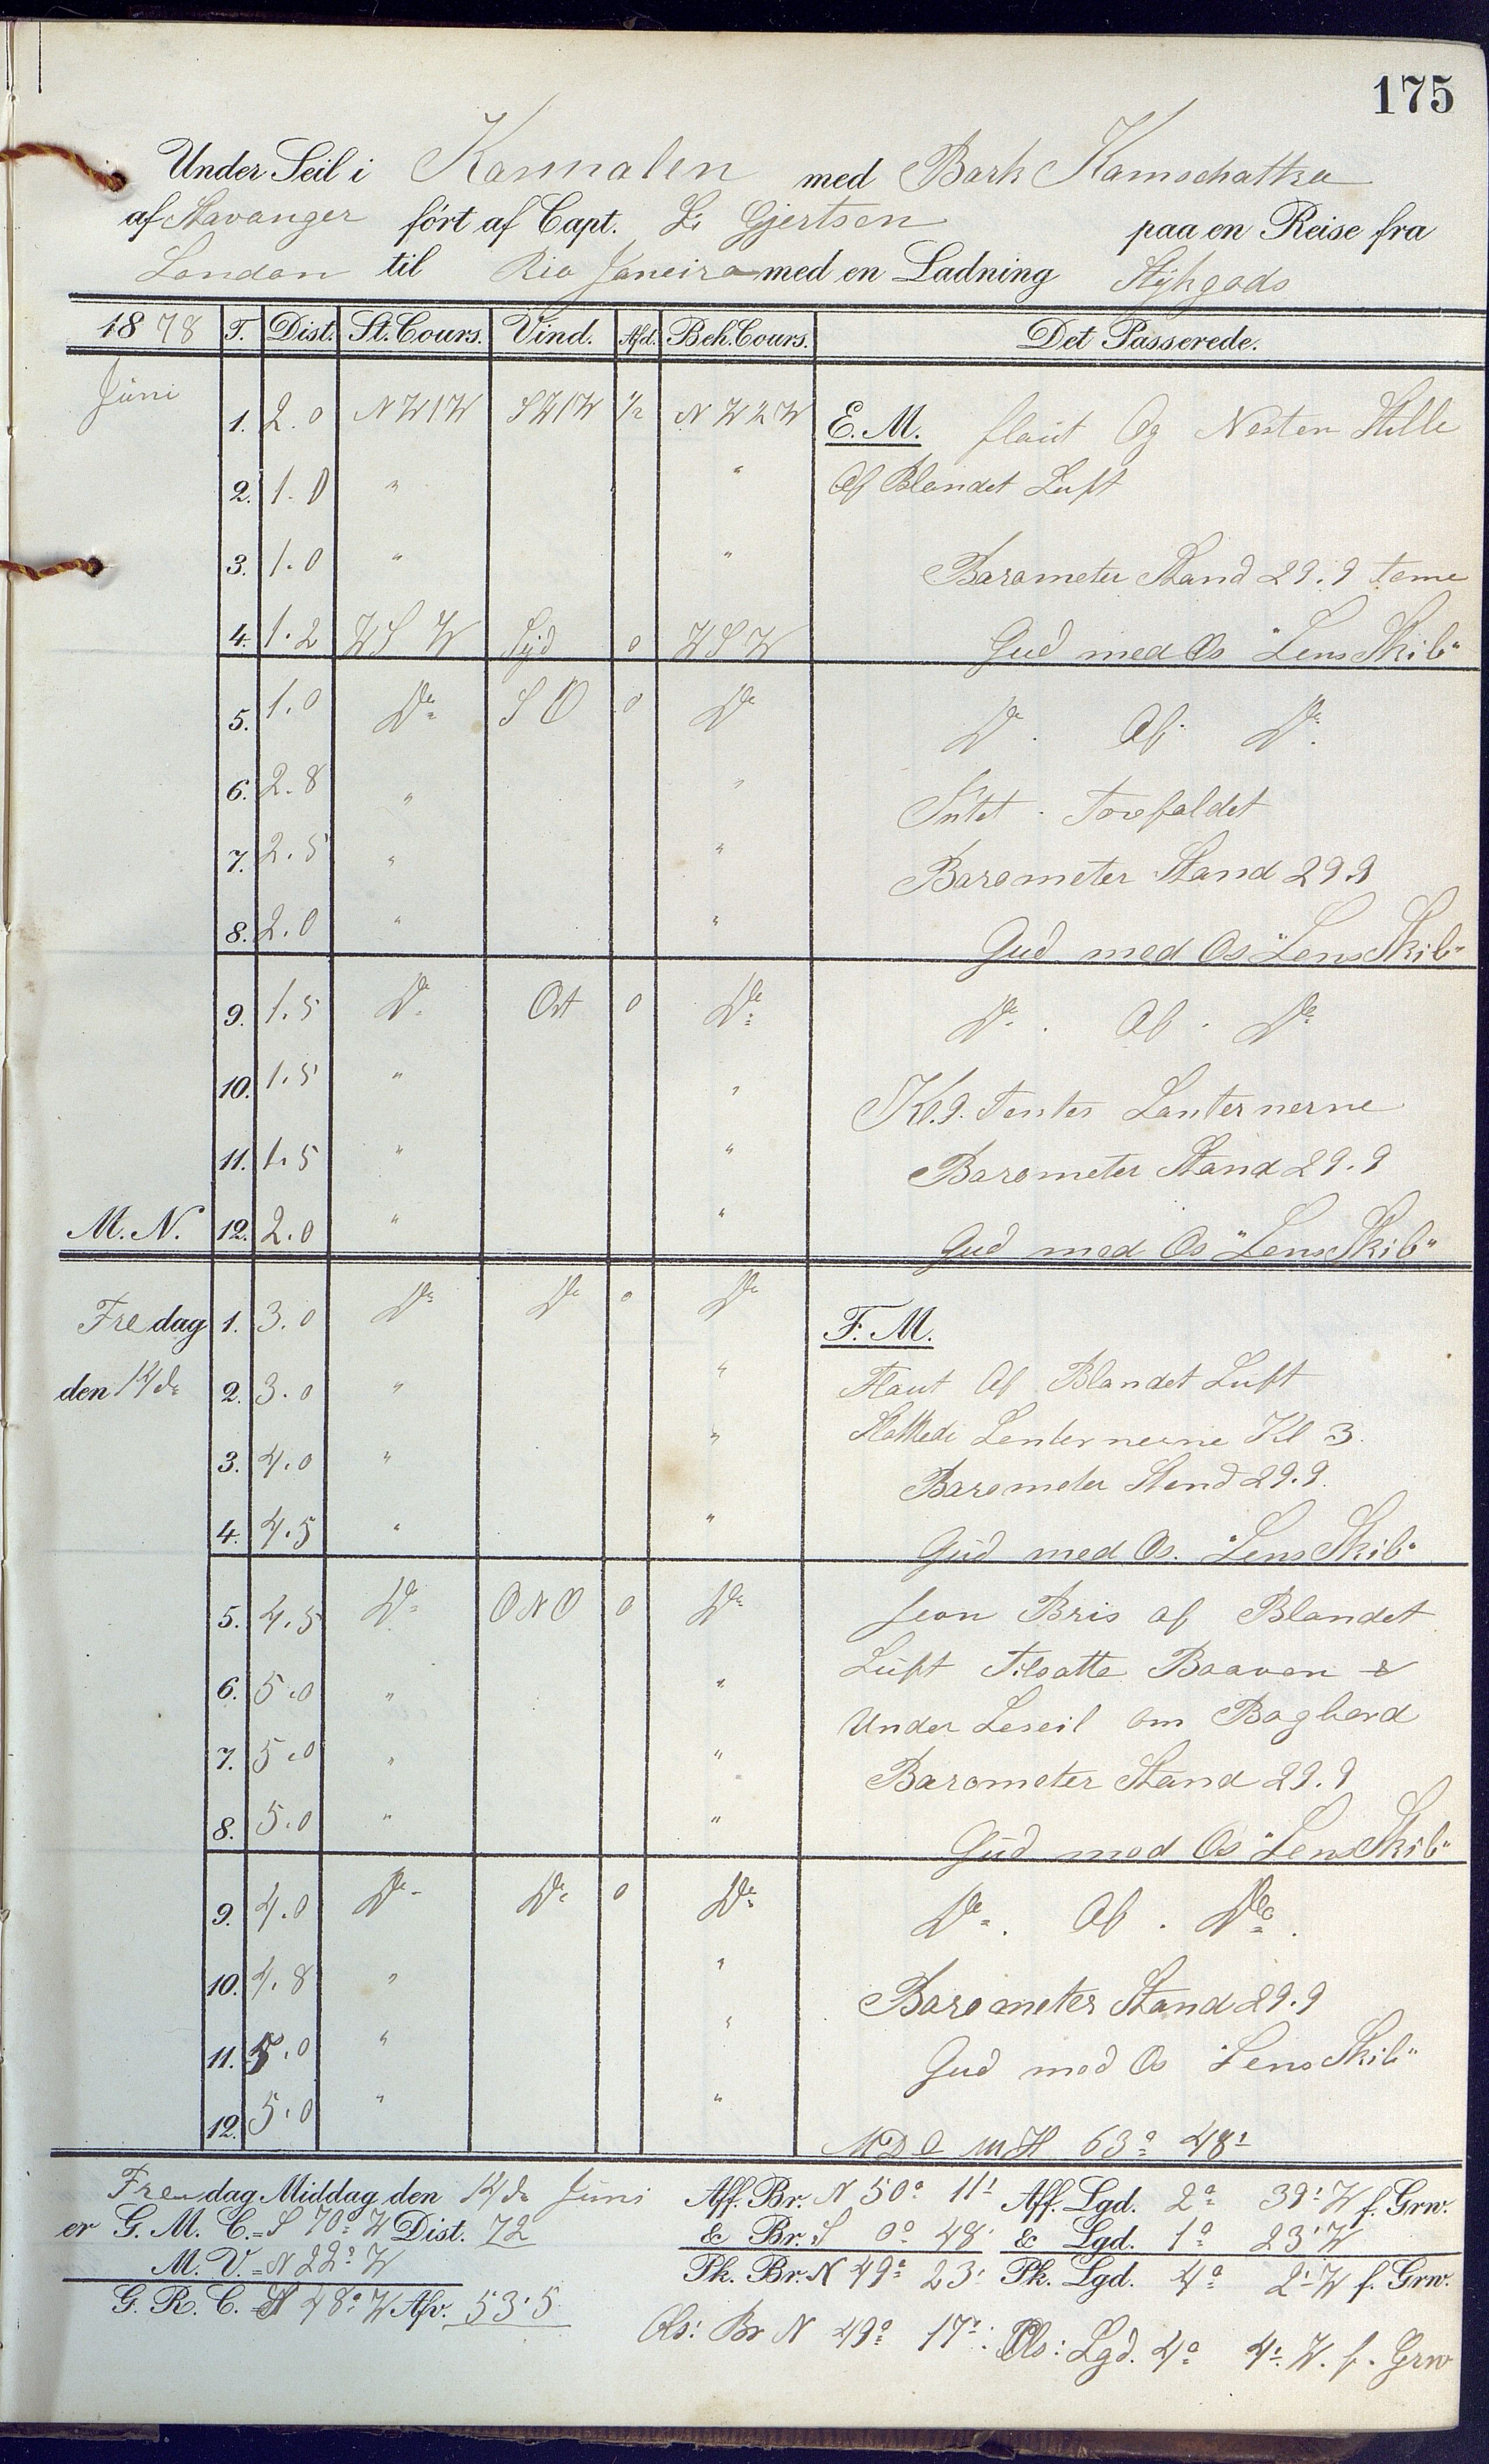 175
Under Seil i Kannalen med Bark Kamschatka
af Stavanger ført af Capt. L. Gjertsen paa en Reise fra
London til Rio Janeiro med en Ladning Stykgods
1878 T. Dist. St. Cours. Vind. Afd. Beh. Cours. Det Passerede.
Juni 1. 2.0 NW1W SW1W 1/2 NW2W E.M. flaut Og Nesten Stille
2. 1.0 " " Af Blandet Luft
3. 1.0 " " Barometer Stand 29.9 tome
4. 1.2 WSW Syd 0 WSW Gud med Os "Lens Skib"
5. 1.0 Do SO 0 Do Do. Af. Do.
6. 2.8 " " Intet. Forefaldet
7. 2.5 " " Barometer Stand 29.9
8. 2.0 " " Gud med Os "Lens Skib"
9. 1.5 Do Ost 0 Do Do. Af. Do
10. 1.5 " " Kl. 9. Tentes Lanternerne
11. 1.5 " " Barometer Stand 29.9
M.N. 12. 2.0 " " Gud med Os "Lens Skib"
Fredag 1. 3.0 Do Do 0 Do F.M.
den 14de 2. 3.0 " " Flaut Af Blandet Luft
3. 4.0 " " Slokkede Lenternerne Kl 3.
Barometer Stand 29.9.
4. 4.5 " " Gud med Os. "Lens Skib"
5. 4.5 Do ONO 0 Do Jevn Bris af Blandet
6. 5.0 " " Luft Tilsatte Baaven &
Under Leseil om Bagbord
7. 5.0 " " Barometer Stand 29.9
8. 5.0 " " Gud med Os "Lens Skib"
9. 4.0 Do Do 0 Do Do. Af. Do.
10. 4.8 " " Barometer Stand 29.9
11. 5.0 " " Gud med Os "Lens Skib"
12. 5.0 " " 63° 48'
Fredag Middag den 14de Juni Aff. Br. N 50° 11' Aff. Lgd. 2° 39' W f. Grw.
er G. M. C. = S 70° W Dist. 72 & Br. S 0° 48' & Lgd. 1° 23' W
M. V. = N 22° W Pk. Br. N 49° 23' Pk. Lgd. 4° 2' W f. Grw.
G. R. C. = S 48° W Afv. 53'5
Obs: Br N 49° 17': Obs: Lgd. 4° 4'. W. f. Grw